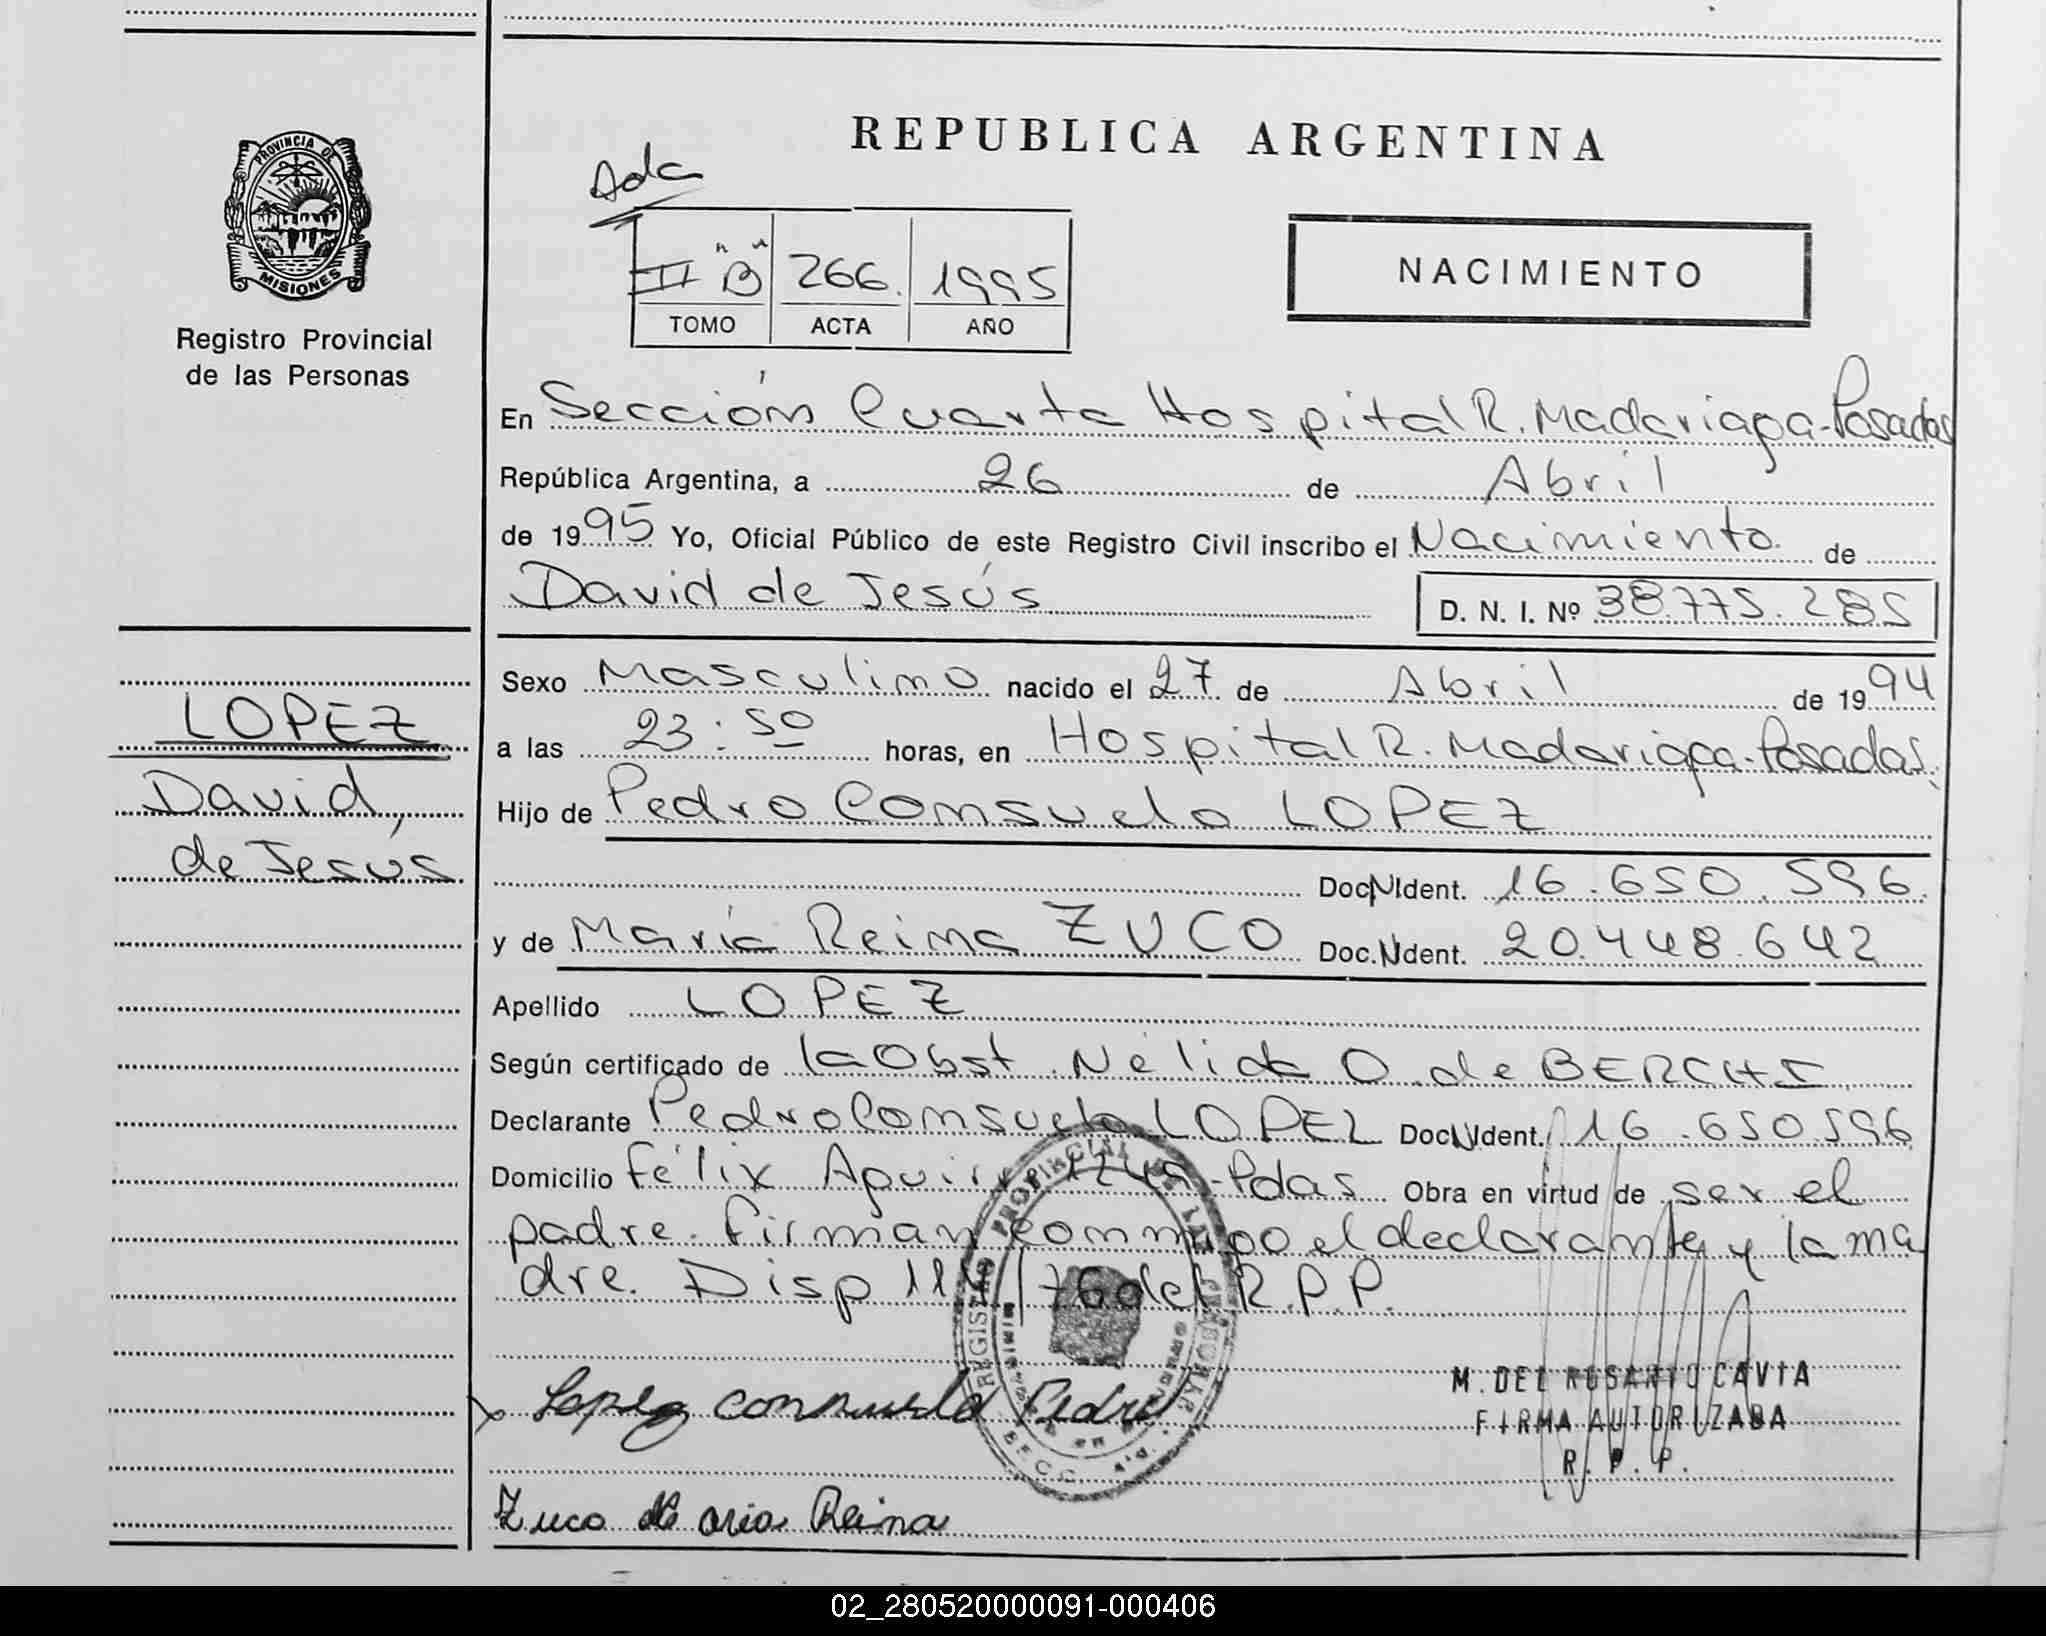 REPUBLICA ARGENTINA
Ada
PROVINCIA DE
MISIONES
Registro Provincial
de las Personas
II "B" 266. 1995
TOMO ACTA AÑO
NACIMIENTO
En Sección Cuarta Hospital R. Madariaga-Posadas
República Argentina, a 26 de Abril
de 1995 Yo, Oficial Público de este Registro Civil inscribo el Nacimiento de
David de Jesús D. N. I. Nº 38.775.285
Sexo Masculino nacido el 27 de Abril de 1994
LOPEZ
David
de Jesús
a las 23:50 horas, en Hospital R. Madariaga-Posadas.
Hijo de Pedro Consuelo LOPEZ
Doc.N.Ident. 16.650.596.
y de María Reina ZUCO Doc.N.Ident. 20.448.642
Apellido LOPEZ
Según certificado de la Obst. Nélida O. de BERCHI
Declarante Pedro Consuelo LOPEZ Doc.N.Ident. 16.650.596
Domicilio Félix Aguirre -Pdas Obra en virtud de ser el
padre. Firman conmigo el declarante y la ma
dre. Disp /76 del R.P.P.
Lopez Consuelo Pedro
M. DEL ROSARIO CAVIA
FIRMA AUTORIZADA
R. P. P.
Zuco Maria Reina
02_280520000091-000406